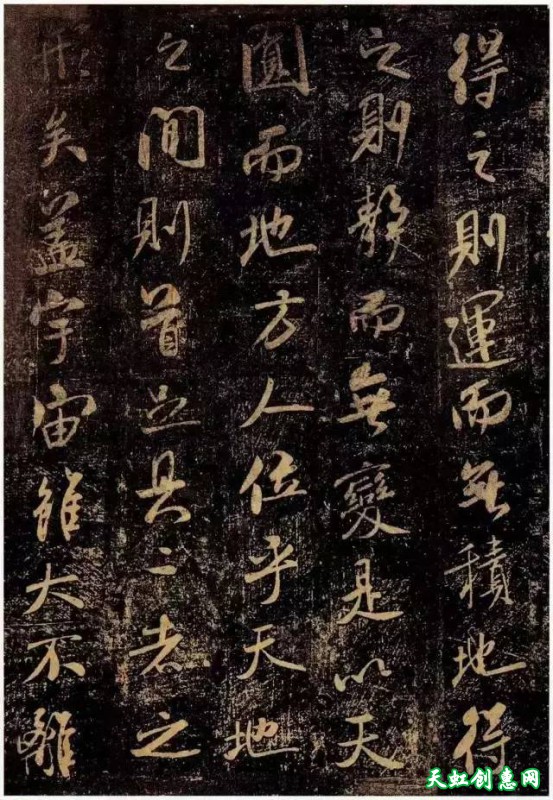 得之則運而無積地得
之則靜而無變是以天
圓而地方人位乎天地
之間則首足具二者之
形矣蓋宇宙雖大不離
天虹创意网